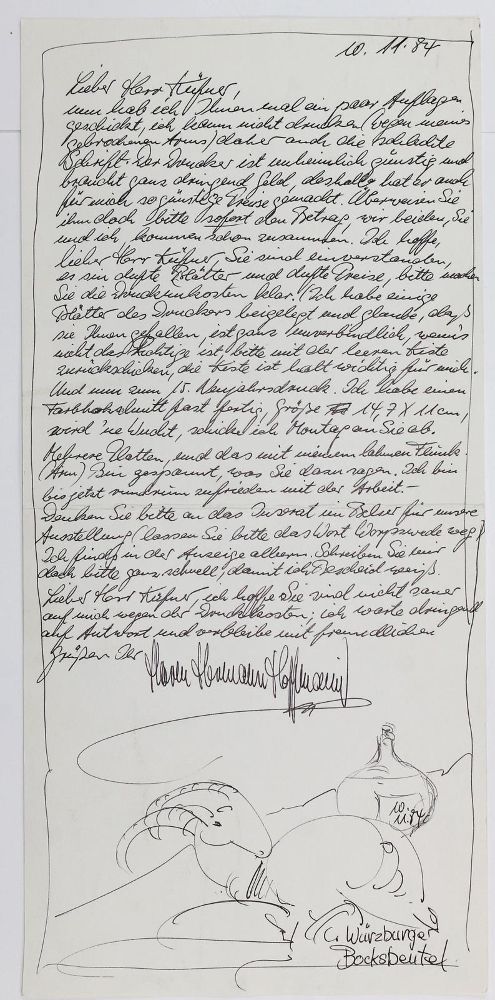 10. 11. 84
Lieber Herr Küfner,
nun hab ich Ihnen mal ein paar Auflagen
geschickt, ich kann nicht drucken (wegen meines
gebrochenen Arms) daher auch die schlechte
Schrift. Der Drucker ist unheimlich günstig und
braucht ganz dringend Geld, deshalb hat er auch
für mich so günstige Preise gemacht. Überweisen Sie
ihm doch bitte sofort den Betrag, wir beiden, Sie
und ich, kommen schon zusammen. Ich hoffe,
lieber Herr Küfner, Sie sind einverstanden,
es sin dufte Blätter und dufte Preise, bitte machen
Sie die Druckunkosten klar. (Ich habe einige
Blätter des Druckers beigelegt und glaube, daß
sie Ihnen gefallen, ist ganz unverbindlich, wenn's
nicht das Richtige ist, bitte mit der leeren Kiste
zurückschicken, die Kiste ist halt wichtig für mich.
Und nun zum 15. Neujahrsdruck. Ich habe einen
Farbholzschnitt fast fertig, Größe 14,7 X 11 cm,
wird 'ne Wucht, schicke ich Montag an Sie ab.
Mehrere Platten, und das mit meinem lahmen Flunk.
(Arm) Bin gespannt, was Sie dazu sagen. Ich bin
bis jetzt rundrum zufrieden mit der Arbeit. –
Denken Sie bitte an das Inserat im Belser für unsere
Ausstellung (lassen Sie bitte das Wort Worpswede weg)
Ich find's in der Anzeige albern. Schreiben Sie mir
doch bitte ganz schnell, damit ich Bescheid weiß.
Lieber Herr Küfner, ich hoffe Sie sind nicht sauer
auf mich wegen der Druckkosten; ich warte dringend
auf Antwort und verbleibe mit freundlichen
Grüßen Ihr
Hermann Hoffmann
10.
11. 84
Würzburger
Bocksbeutel